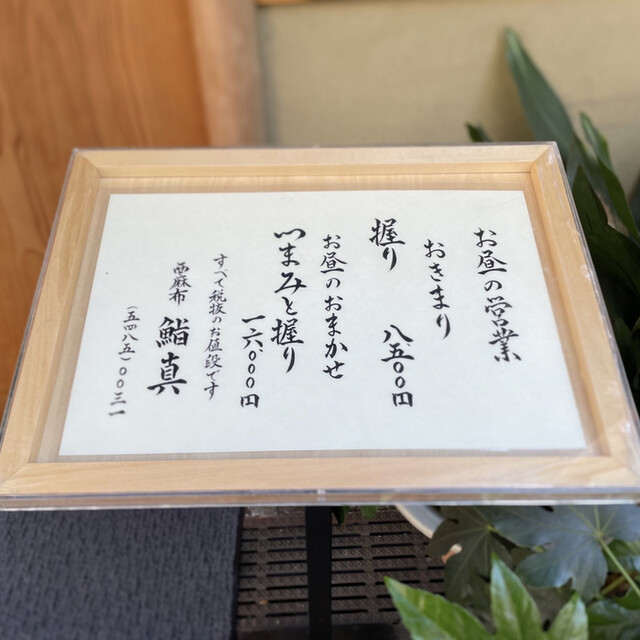 お昼の営業
おきまり
握り 八五〇〇円
お昼のおまかせ
つまみと握り
一六、〇〇〇円
すべて税抜のお値段です
西麻布 鮨真
(五四八五)〇〇三一